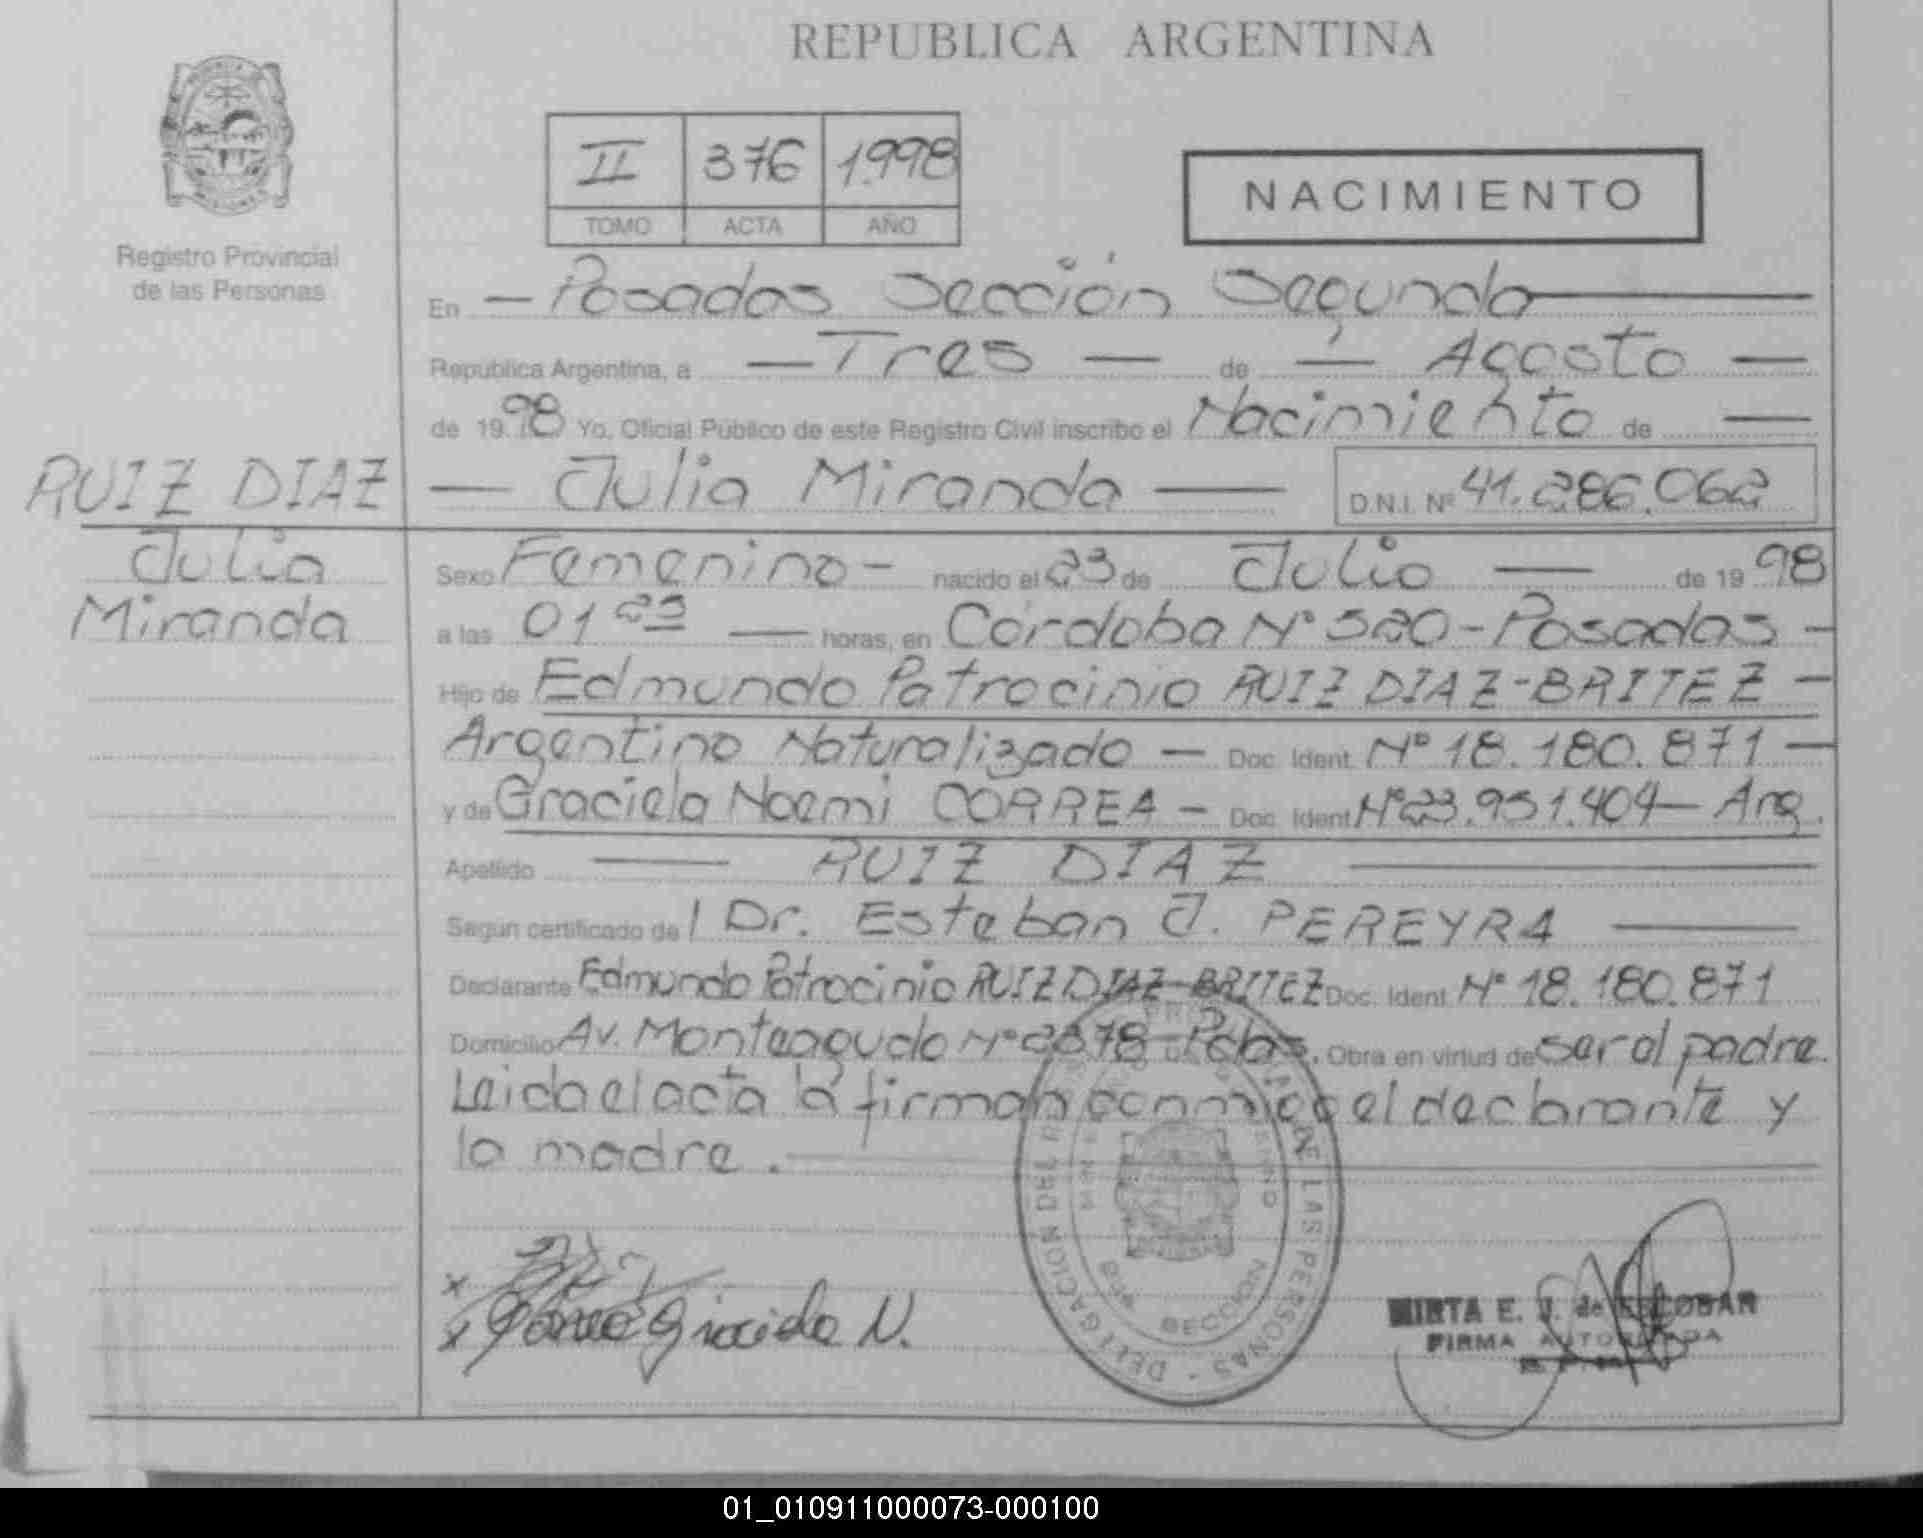 REPUBLICA ARGENTINA
II 376 1.998
TOMO ACTA AÑO
NACIMIENTO
Registro Provincial
de las Personas
En — Posadas Sección Segunda —
Republica Argentina, a — Tres — de — Agosto —
de 19 98 Yo, Oficial Público de este Registro Civil inscribo el Nacimiento de —
RUIZ DIAZ — Julia Miranda — D.N.I. Nº 41.286.062
Julia
Miranda
Sexo Femenino - nacido el 23 de Julio — de 19 98
a las 01 25 — horas, en Córdoba Nº 520 - Posadas -
Hijo de Edmundo Patrocinio RUIZ DIAZ - BRITEZ -
Argentino Naturalizado — Doc. Ident. Nº 18.180.871 —
y de Graciela Noemi CORREA - Doc. Ident. Nº 23.951.404 - Arg.
Apellido — RUIZ DIAZ —
Según certificado de Dr. Esteban J. PEREYRA —
Declarante Edmundo Patrocinio RUIZ DIAZ - BRITEZ Doc. Ident. Nº 18.180.871
Domicilio Av. Monteagudo Nº 2878 - Pdas. Obra en virtud de ser el padre.
Leida el acta la firman conmigo el declarante y
la madre.
DELEGACION DEL DE LAS PERSONAS
SECCION
x
x Correa Graciela N.
MIRTA E. J. de ESCOBAR
FIRMA AUTORIZADA
01_010911000073-000100